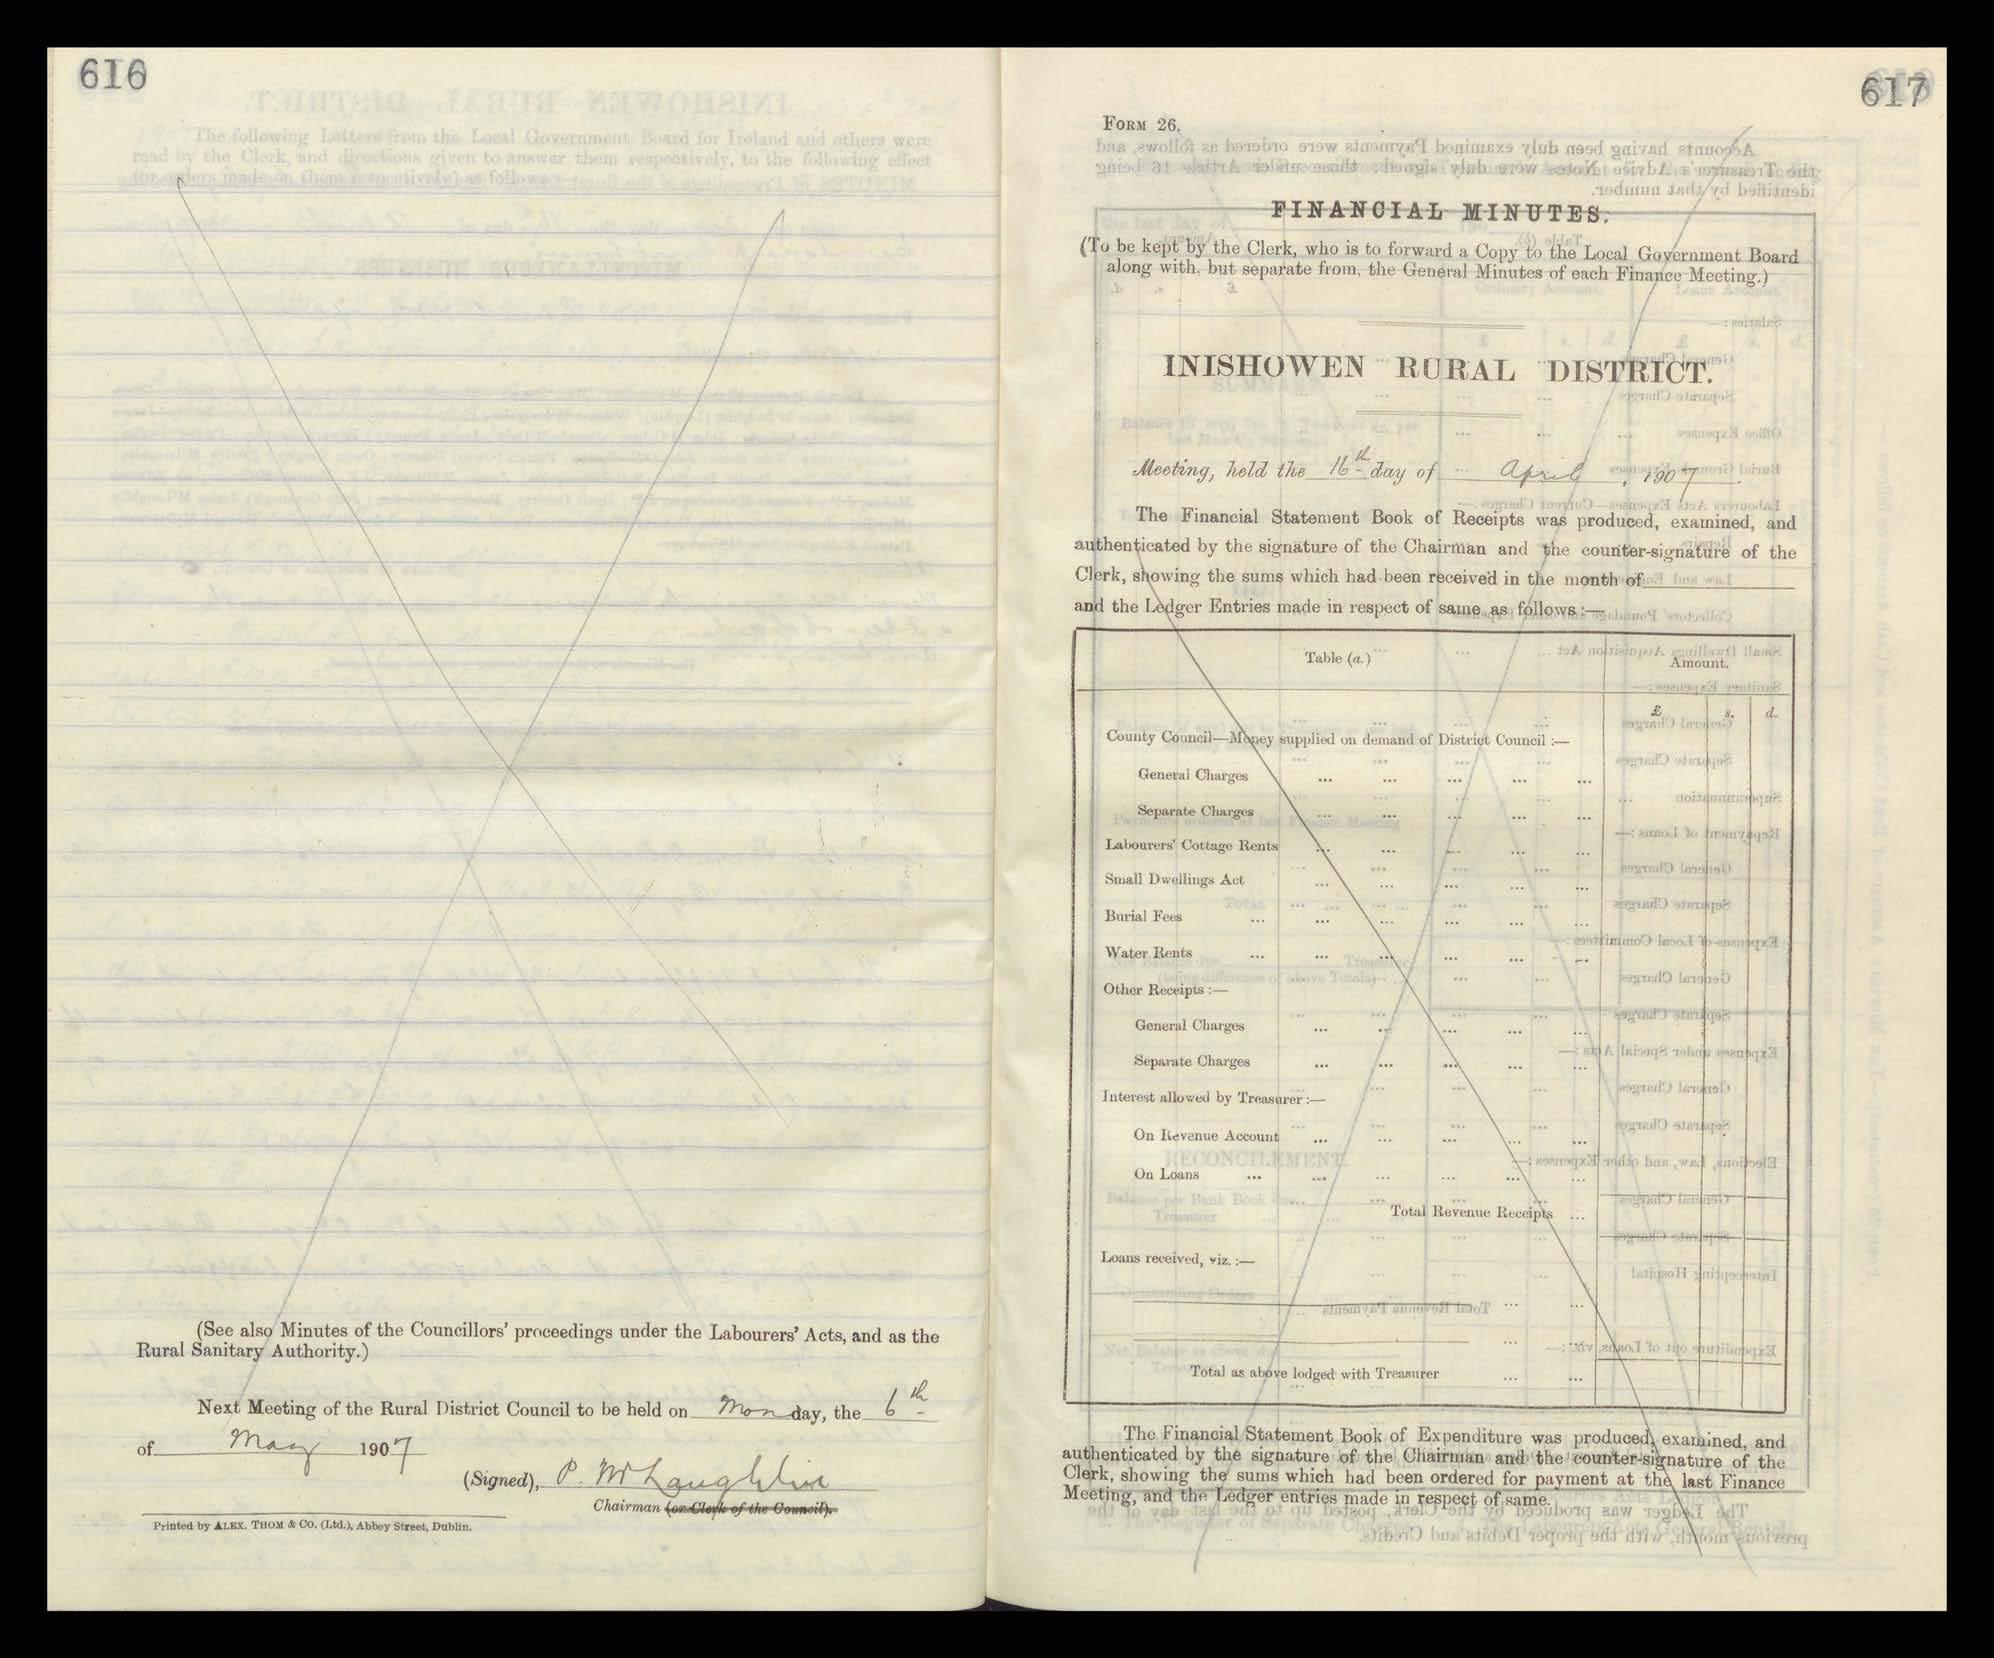 616
(See also Minutes of the Councillors' proceedings under the Labourers' Acts, and as the
Rural Sanitary Authority.)
Next Meeting of the Rural District Council to be held on Monday, the 6th
of May 1907
(Signed), P. McLaughlin
Chairman (or Clerk of the Council).
Printed by ALEX. THOM & CO. (Ltd.), Abbey Street, Dublin.
617
FORM 26.
FINANCIAL MINUTES.
(To be kept by the Clerk, who is to forward a Copy to the Local Government Board
along with, but separate from, the General Minutes of each Finance Meeting.)
INISHOWEN RURAL DISTRICT.
Meeting, held the 16th day of April, 1907.
The Financial Statement Book of Receipts was produced, examined, and
authenticated by the signature of the Chairman and the counter-signature of the
Clerk, showing the sums which had been received in the month of
and the Ledger Entries made in respect of same as follows:—
Table (a.) Amount.
£ s. d.
County Council—Money supplied on demand of District Council :—
General Charges ... ... ... ... ...
Separate Charges ... ... ... ... ...
Labourers' Cottage Rents ... ... ... ... ...
Small Dwellings Act ... ... ... ... ...
Burial Fees ... ... ... ... ... ...
Water Rents ... ... ... ... ... ...
Other Receipts :—
General Charges ... ... ... ... ...
Separate Charges ... ... ... ... ...
Interest allowed by Treasurer :—
On Revenue Account ... ... ... ... ...
On Loans ... ... ... ... ... ...
Total Revenue Receipts ...
Loans received, viz. :—
... ...
... ...
Total as above lodged with Treasurer ... ...
The Financial Statement Book of Expenditure was produced, examined, and
authenticated by the signature of the Chairman and the counter-signature of the
Clerk, showing the sums which had been ordered for payment at the last Finance
Meeting, and the Ledger entries made in respect of same.